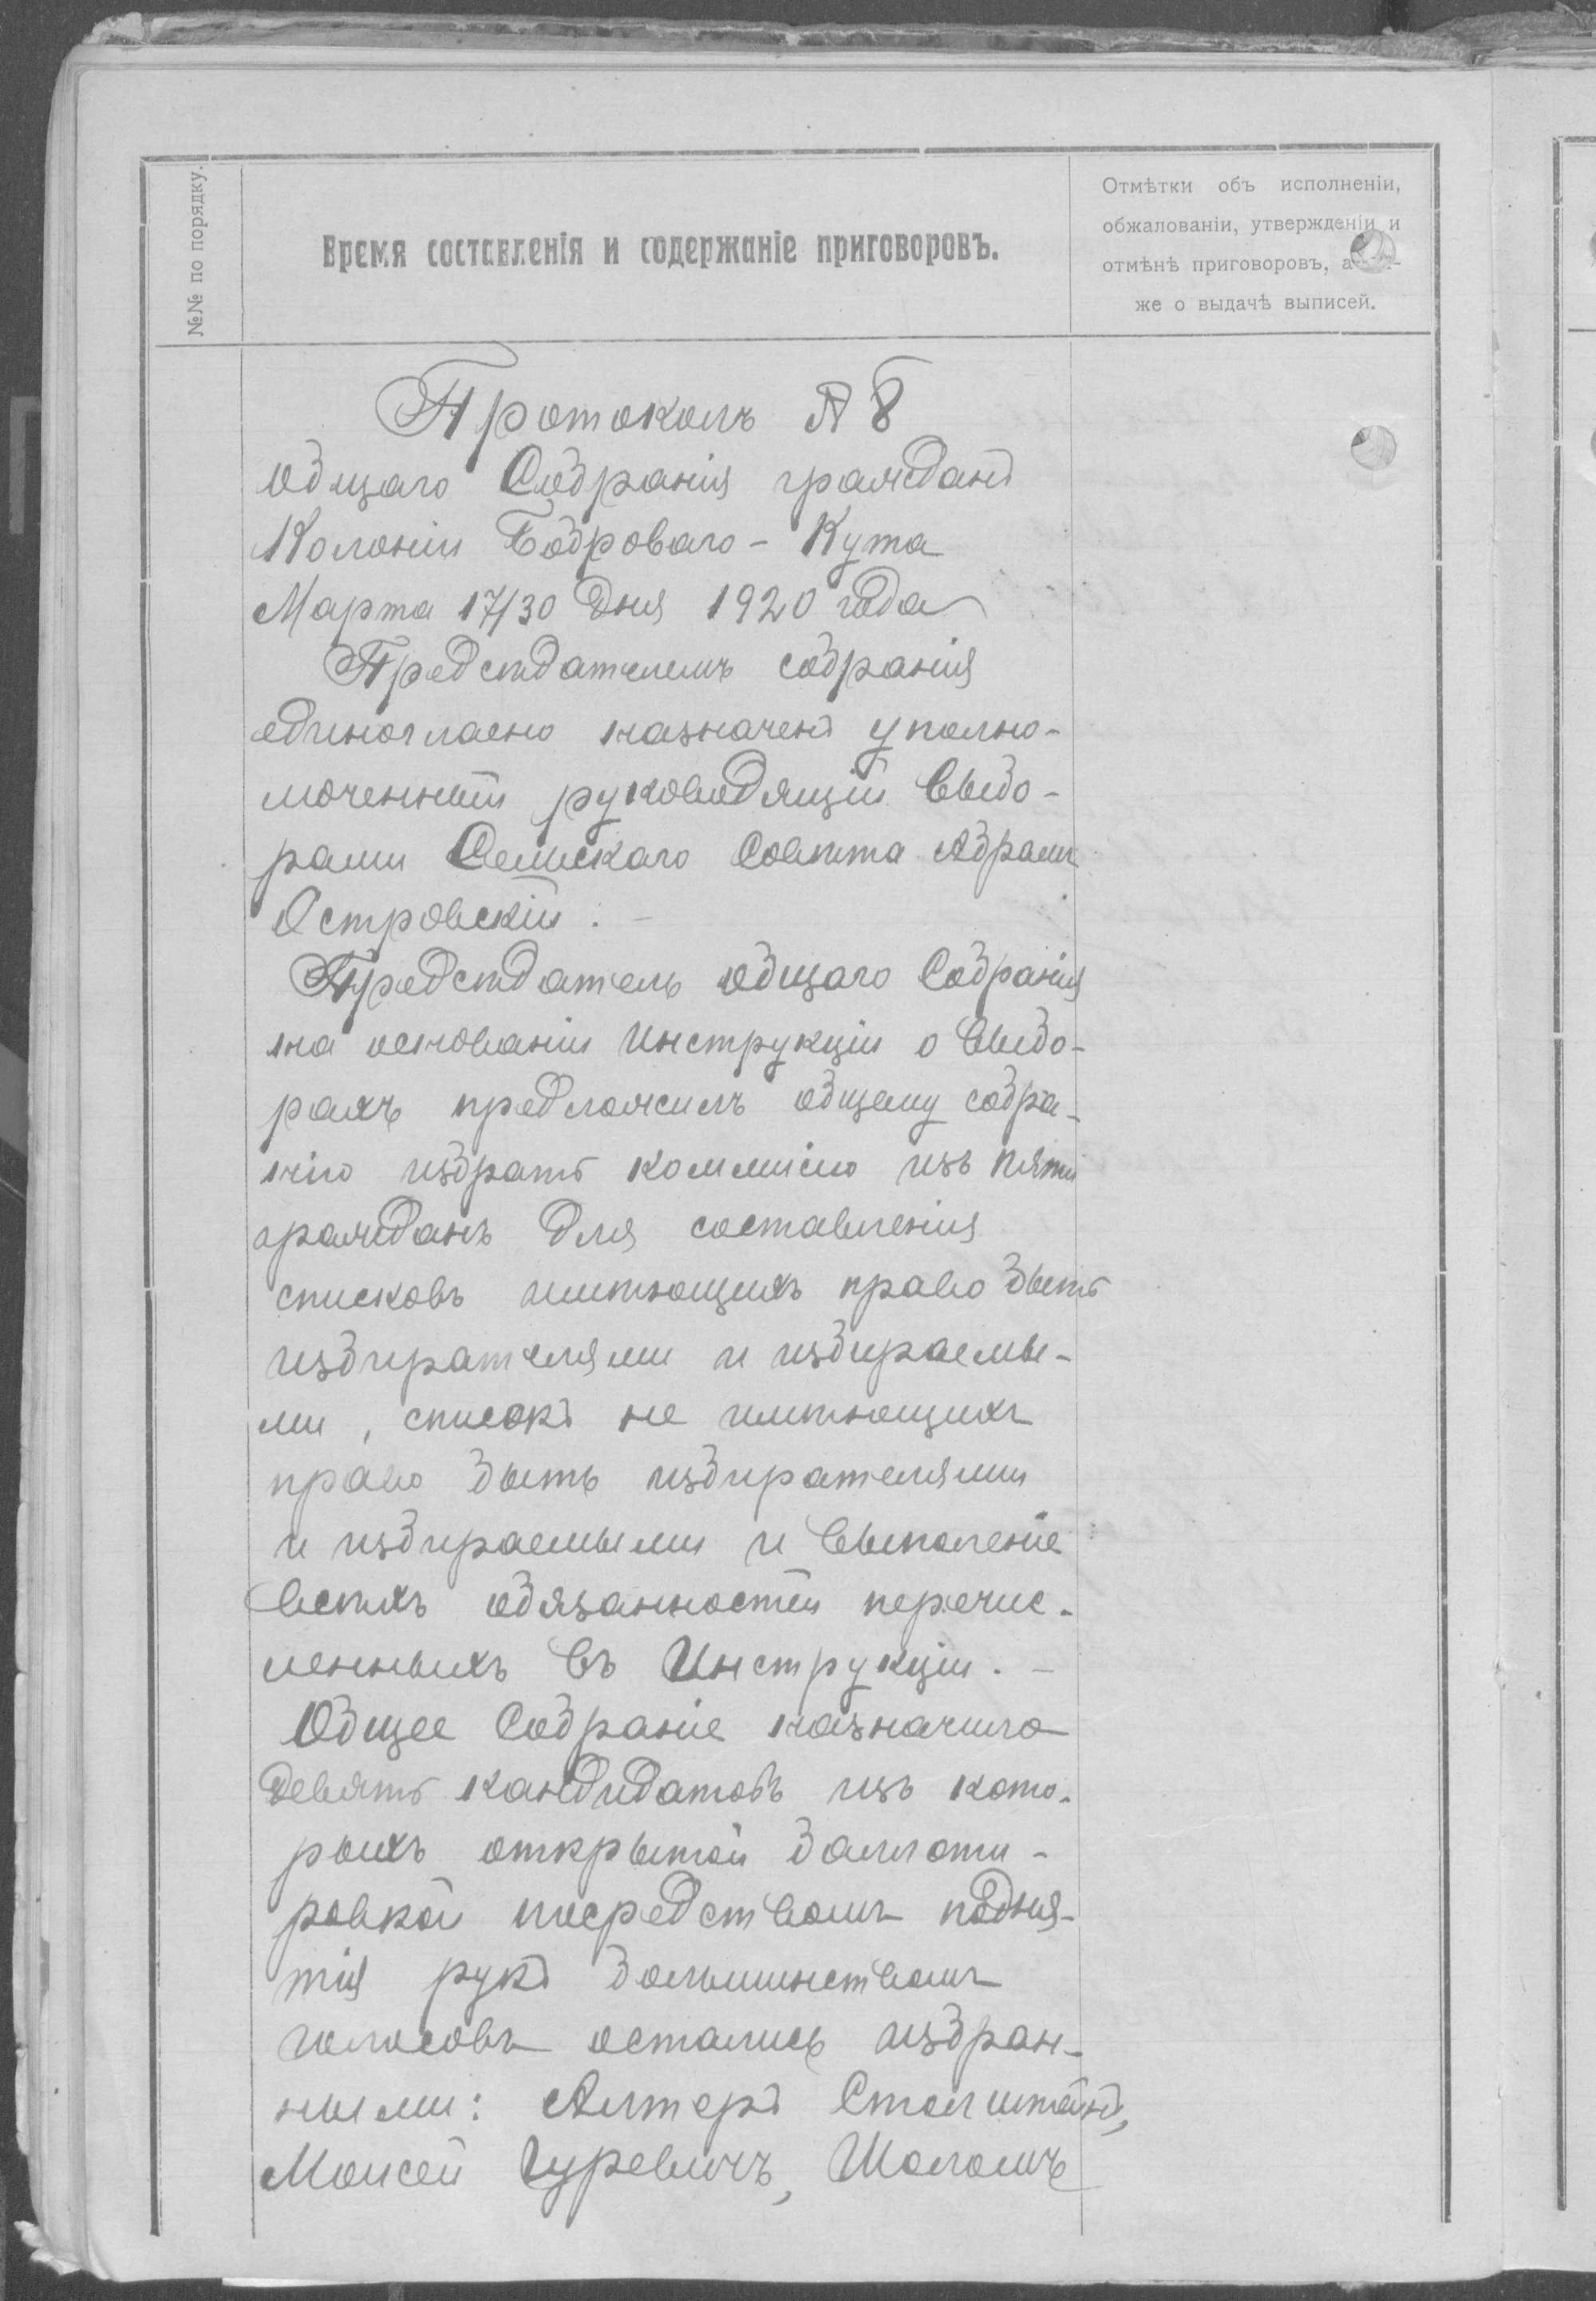 №№ по порядку.
Время составленія и содержаніе приговоровъ.
Отмѣтки объ исполненіи,
обжалованіи, утвержденіи и
отмѣнѣ приговоровъ, а
же о выдачѣ выписей.
Протоколъ №
общаго Собранія гражданъ
Колоніи Боброваго-Кута
Марта 17/30 дня 1920 года
Предсѣдателемъ собранія
единогласно назначенъ уполно-
моченный руководящій выбо-
рами Сельскаго Совѣта Абрамъ
Островскій. -
Предсѣдатель общаго Собранія
на основаніи Инструкціи о выбо-
рахъ предложилъ общему собра-
нію избрать коммисію изъ пяти
гражданъ для составленія
списковъ имѣющихъ право быть
избирателями и избираемы-
ми, списокъ не имѣющихъ
право быть избирателями
и избираемыми и выполеніе
всѣхъ обязанностей перечис-
ленныхъ въ Инструкціи. -
Общее Собраніе назначило
девять кандидатовъ изъ кото-
рыхъ открытой баллоти-
ровкой посредствомъ подня-
тія рукъ большинствомъ
голосовъ остались избран-
ными: Алтеръ
Моисей Гуревичъ, Шоломъ